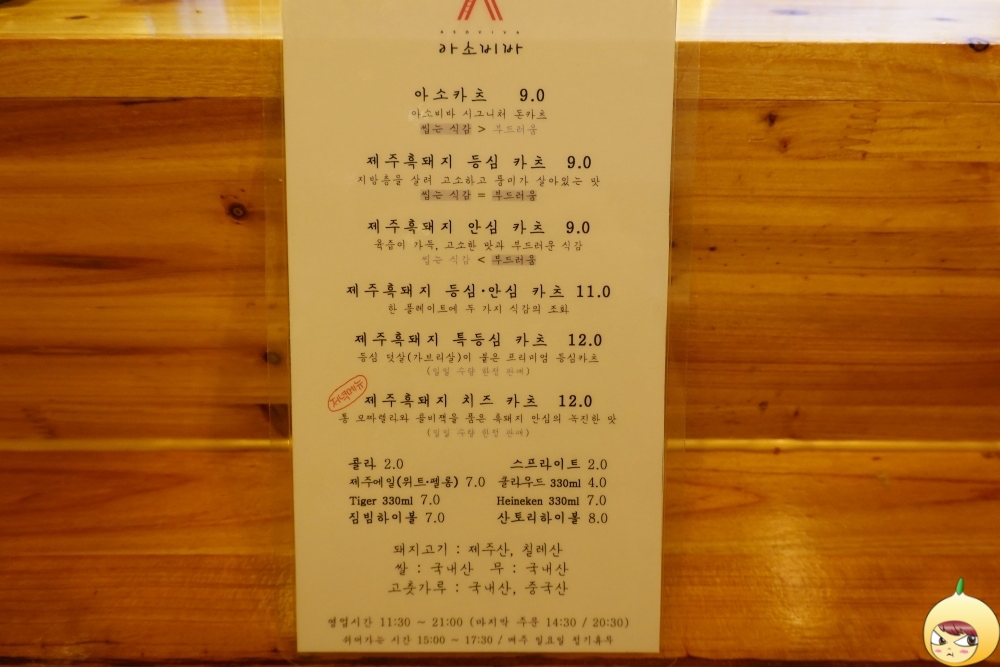 ASOVIVA
아소비바
아소카츠 9.0
아소비바 시그니처 돈카츠
씹는 식감 > 부드러움
제주흑돼지 등심 카츠 9.0
지방층을 살려 고소하고 풍미가 살아있는 맛
씹는 식감 = 부드러움
제주흑돼지 안심 카츠 9.0
육즙이 가득, 고소한 맛과 부드러운 식감
씹는 식감 < 부드러움
제주흑돼지 등심·안심 카츠 11.0
한 플레이트에 두 가지 식감의 조화
제주흑돼지 특등심 카츠 12.0
등심 덧살(가브리살)이 붙은 프리미엄 등심카츠
(일일 수량 한정 판매)
저녁메뉴
제주흑돼지 치즈 카츠 12.0
통 모짜렐라와 콜비잭을 품은 흑돼지 안심의 녹진한 맛
(일일 수량 한정 판매)
콜라 2.0 스프라이트 2.0
제주에일(위트·펠롱) 7.0 클라우드 330ml 4.0
Tiger 330ml 7.0 Heineken 330ml 7.0
짐빔하이볼 7.0 산토리하이볼 8.0
돼지고기 : 제주산, 칠레산
쌀 : 국내산 무 : 국내산
고춧가루 : 국내산, 중국산
영업시간 11:30 ~ 21:00 (마지막 주문 14:30 / 20:30)
쉬어가는 시간 15:00 ~ 17:30 / 매주 일요일 정기휴무